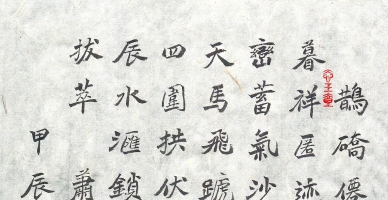 鵲礄僊
暮祥匿迹
巒蓄氣沙
天馬飛蹏
四圍拱伏
辰水滙鎖
拔萃 蕭
甲辰